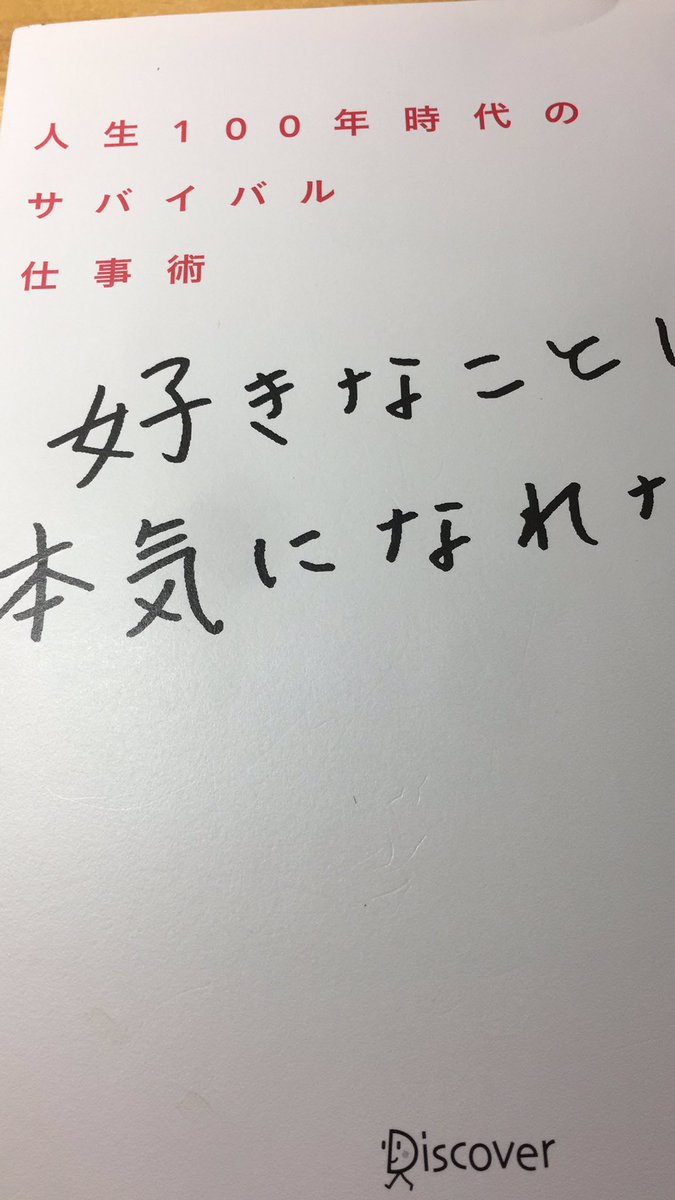 人生100年時代の
サバイバル
仕事術
好きなこと
本気になれ
Discover